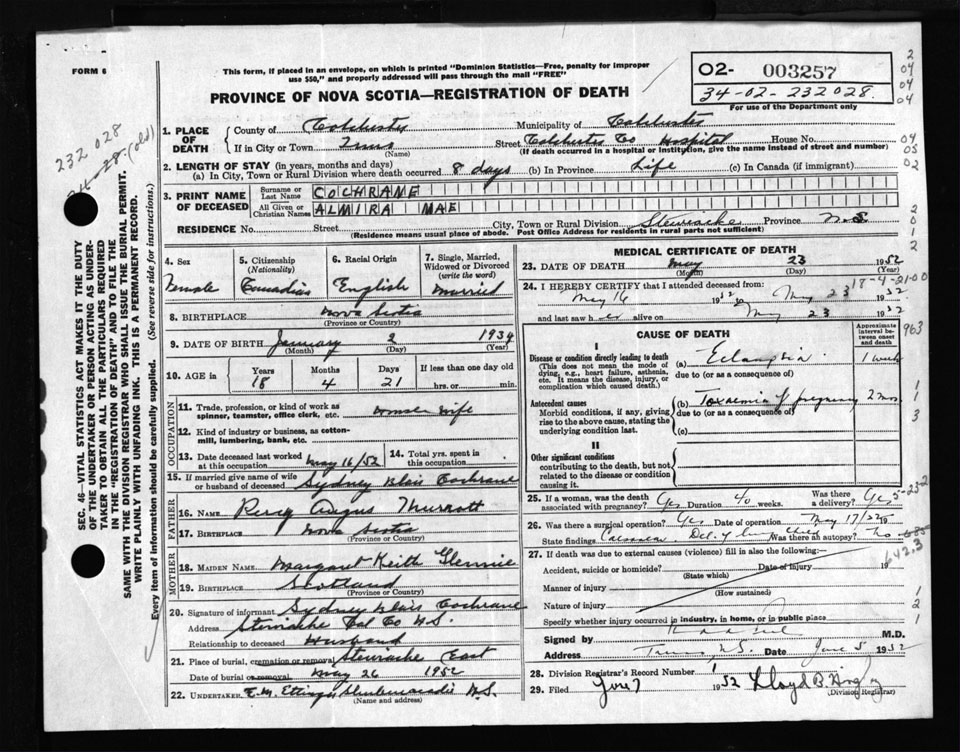 FORM 6
This form, if placed in an envelope, on which is printed "Dominion Statistics—Free, penalty for improper
use $50," and properly addressed will pass through the mail "FREE"
PROVINCE OF NOVA SCOTIA—REGISTRATION OF DEATH
02- 003257
34-02-232028.
For use of the Department only
2
04
04
04
232028
28. (old)
SEC. 46—VITAL STATISTICS ACT MAKES IT THE DUTY
OF THE UNDERTAKER OR PERSON ACTING AS UNDER-
TAKER TO OBTAIN ALL THE PARTICULARS REQUIRED
IN THE "REGISTRATION OF DEATH" AND TO FILE THE
SAME WITH THE DIVISION REGISTRAR WHO SHALL ISSUE THE BURIAL PERMIT.
WRITE PLAINLY WITH UNFADING INK. THIS IS A PERMANENT RECORD.
Every item of information should be carefully supplied. (See reverse side for instructions.)
1. PLACE OF DEATH
County of Colchester Municipality of Colchester
If in City or Town Truro (Name) Street Colchester Co Hospital House No.
(If death occurred in a hospital or institution, give the name instead of street and number)
04
05
02
2. LENGTH OF STAY (in years, months and days)
(a) In City, Town or Rural Division where death occurred 8 days (b) In Province Life (c) In Canada (if immigrant)
3. PRINT NAME OF DECEASED
Surname or Last Name COCHRANE
All Given or Christian Names ALMIRA MAE
2
0
1
2
RESIDENCE No. Street City, Town or Rural Division Stewiacke Province N.S.
(Residence means usual place of abode. Post Office Address for residents in rural parts not sufficient)
4. Sex Female
5. Citizenship (Nationality) Canadian
6. Racial Origin English
7. Single, Married, Widowed or Divorced (write the word) Married
8. BIRTHPLACE Nova Scotia
(Province or Country)
9. DATE OF BIRTH January 2 1934
(Month) (Day) (Year)
10. AGE in Years 18 Months 4 Days 21 If less than one day old hrs. or min.
OCCUPATION
11. Trade, profession, or kind of work as spinner, teamster, office clerk, etc. House Wife
12. Kind of industry or business, as cotton-mill, lumbering, bank, etc.
13. Date deceased last worked at this occupation May 16/52
14. Total yrs. spent in this occupation
15. If married give name of wife or husband of deceased Sydney Blair Cochrane
FATHER
16. NAME Percy Angus
17. BIRTHPLACE Nova Scotia
(Province or Country)
MOTHER
18. MAIDEN NAME Margaret Keith Glennie
19. BIRTHPLACE Scotland
(Province or Country)
20. Signature of informant Sydney Blair Cochrane
Address Stewiacke Col Co N.S.
Relationship to deceased Husband
21. Place of burial, cremation or removal Stewiacke East
Date of burial or removal May 26 1952
22. UNDERTAKER E.M. Ettinger Shubenacadie N.S.
(Name and address)
MEDICAL CERTIFICATE OF DEATH
23. DATE OF DEATH May 23 1952
(Month) (Day) (Year)
18-4-21-00
24. I HEREBY CERTIFY that I attended deceased from:
May 16 1952 to May 23 1952
and last saw her alive on May 23 1952
CAUSE OF DEATH
Approximate interval between onset and death
963
I
Disease or condition directly leading to death
(This does not mean the mode of dying, e.g., heart failure, asthenia, etc. It means the disease, injury, or complication which caused death.)
(a) Eclampsia 1 week
due to (or as a consequence of)
Antecedent causes
Morbid conditions, if any, giving rise to the above cause, stating the underlying condition last.
(b) Toxaemia of pregnancy 2 mos
due to (or as a consequence of)
(c)
1
1
3
II
Other significant conditions
contributing to the death, but not related to the disease or condition causing it.
25. If a woman, was the death associated with pregnancy? Yes Duration 40 weeks. Was there a delivery? Yes
5-23-2
26. Was there a surgical operation? Yes Date of operation May 17/52 19
State findings Caesarean Del. of live child Was there an autopsy? No
685
642.3
27. If death was due to external causes (violence) fill in also the following:—
Accident, suicide or homicide? Date of injury 19
(State which)
Manner of injury
(How sustained)
Nature of injury
Specify whether injury occurred in industry, in home, or in public place
1
2
1
Signed by M.D.
Address Truro N.S. Date June 5 1952
28. Division Registrar's Record Number
29. Filed June 7 1952 Lloyd B.
(Division Registrar)